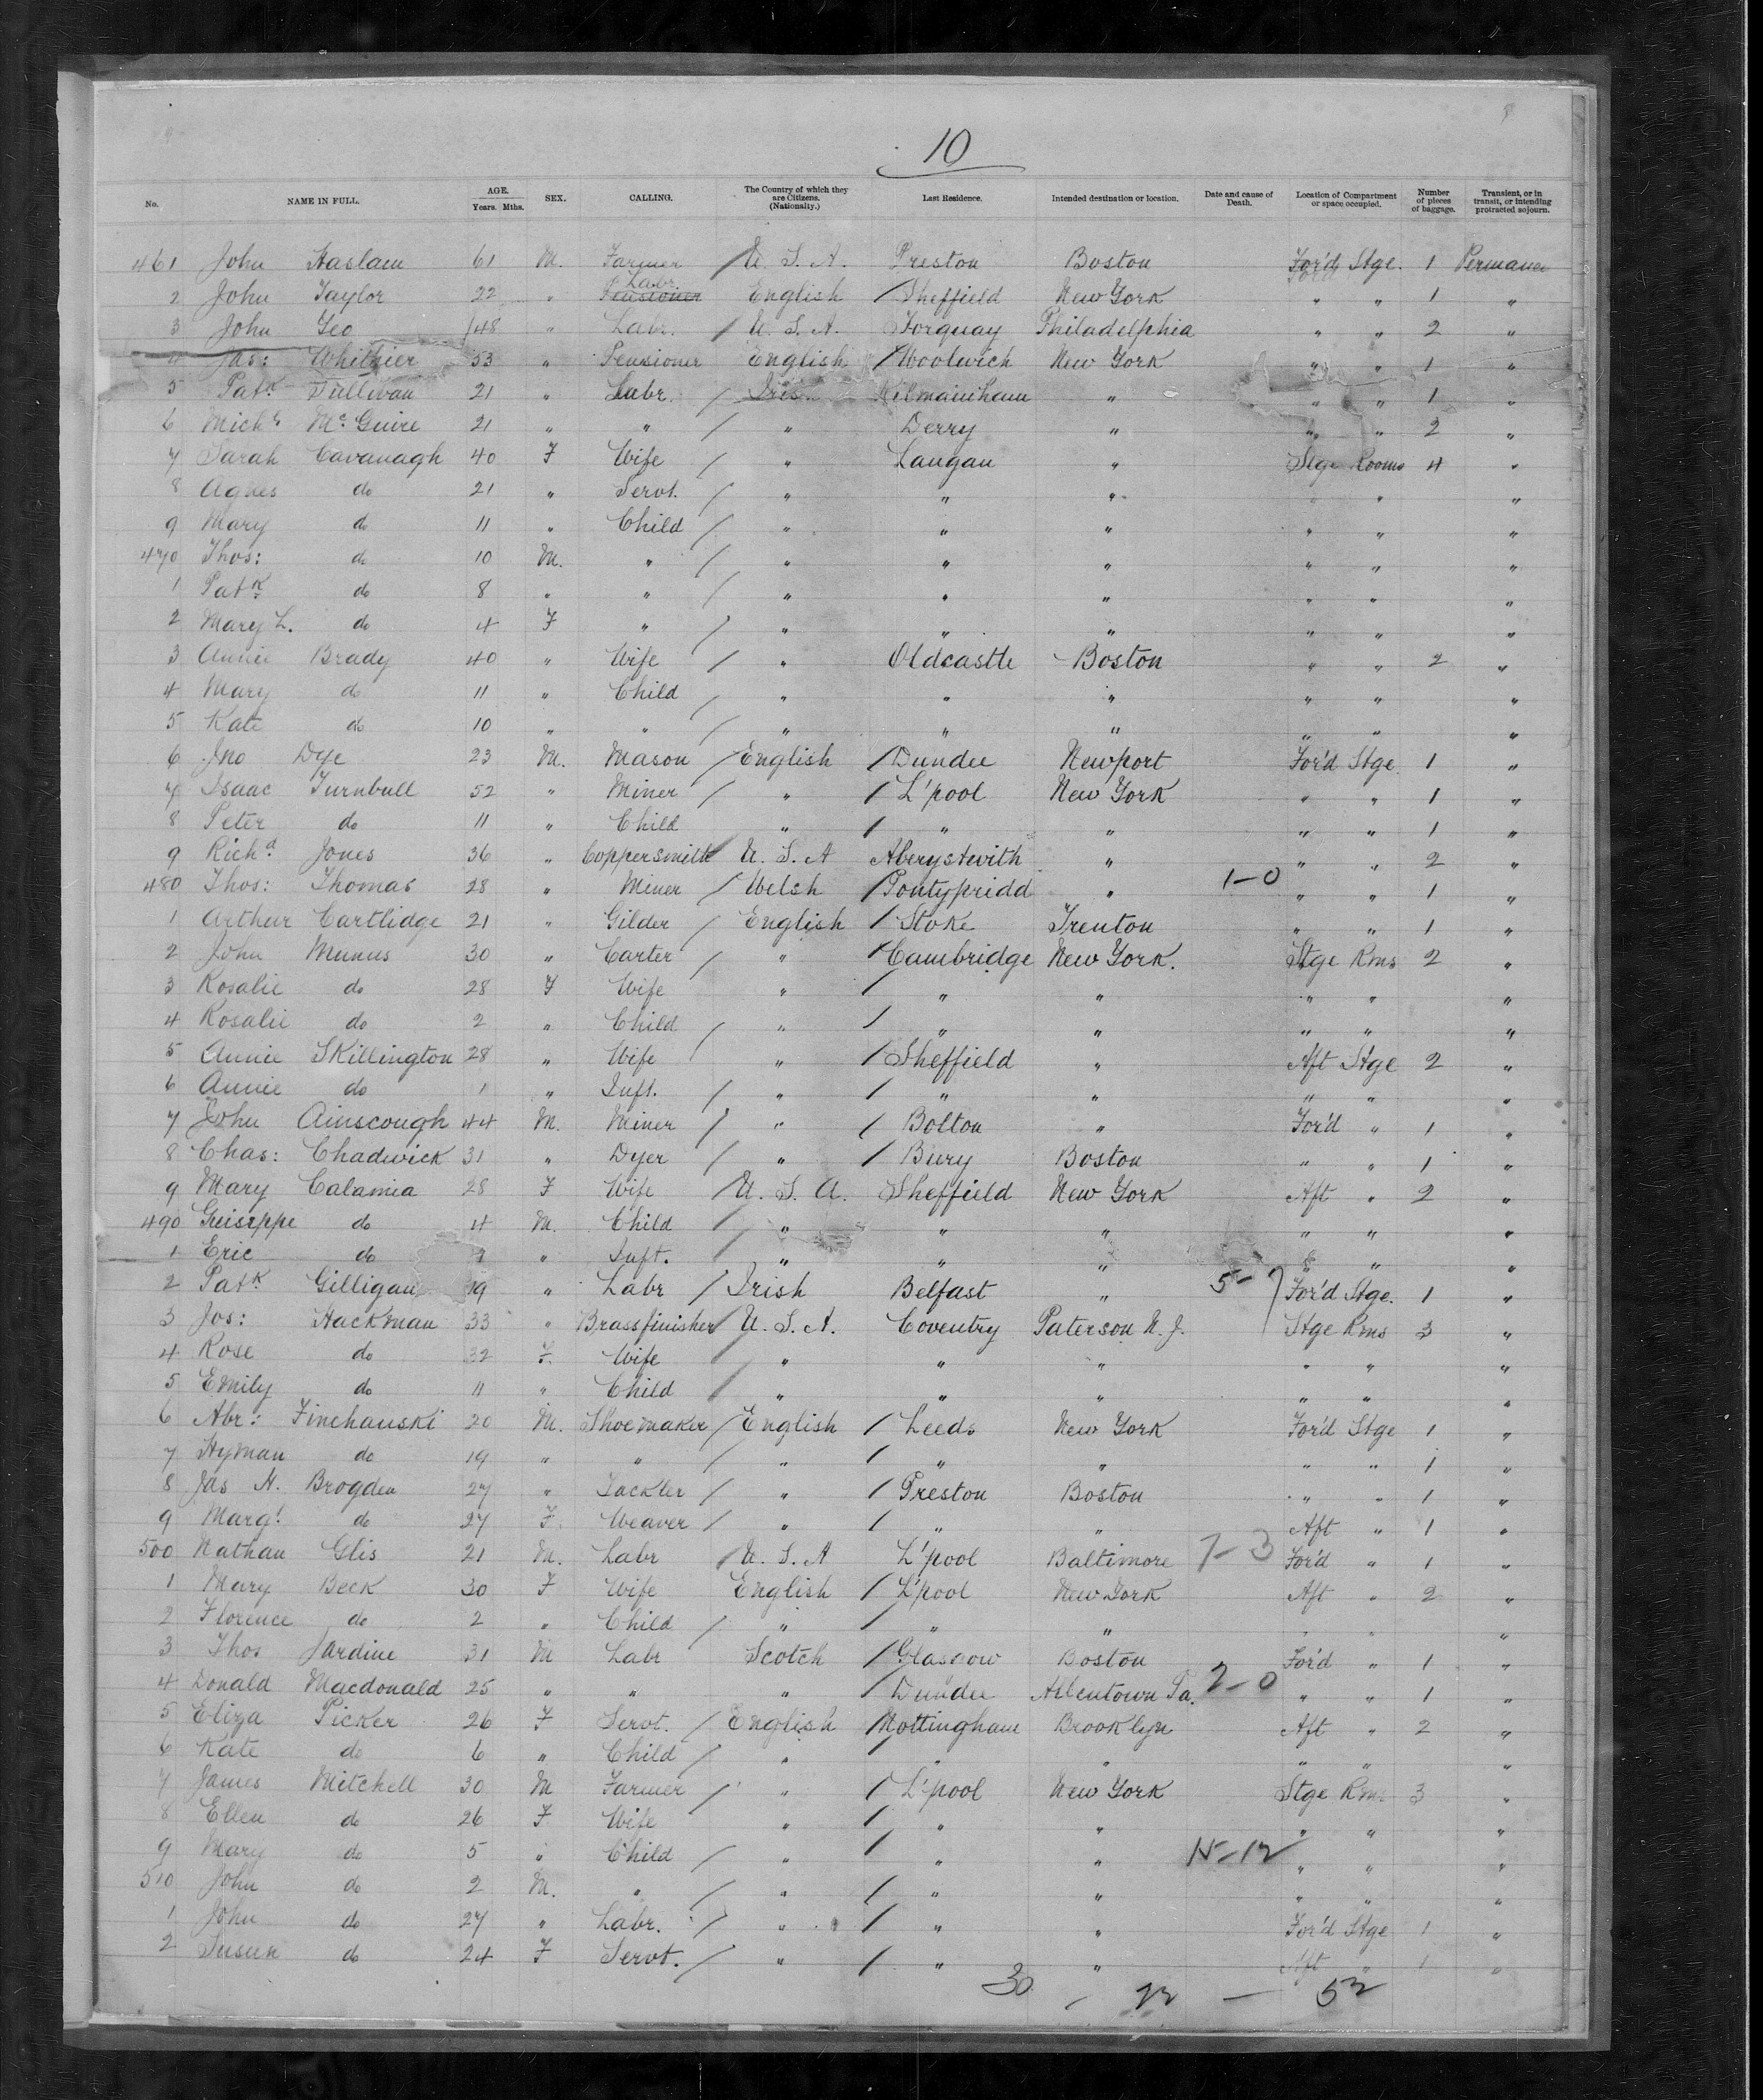 10
No. NAME IN FULL. AGE. Years. Mths. SEX. CALLING. The Country of which they are Citizens. (Nationality.) Last Residence. Intended destination or location. Date and cause of Death. Location of Compartment or space occupied. Number of pieces of baggage. Transient, or in transit, or intending protracted sojourn.
461 John Haslam 61 M. Farmer / U. S. A. Preston Boston For'd Stge. 1 Permanen
2 John Taylor 22 " Pensioner Labr. English / Sheffield New York " " 1 "
3 John Geo 48 " Labr. / U. S. A. Torquay Philadelphia " " 2 "
4 Jas: Whithier 53 " Pensioner English / Woolwich New York " " 1 "
5 Patk Sullivan 21 " Labr. / Iris Kilmainham " " " 1 "
6 Michl McGuire 21 " " / " Derry " " " 2 "
7 Sarah Cavanagh 40 F Wife / " Langan " Stge Rooms 4 "
8 Agnes do 21 " Servt. / " " " " " "
9 Mary do 11 " Child / " " " " " "
470 Thos: do 10 M. " / " " " " " "
1 Patk do 8 " " / " " " " " "
2 Mary L. do 4 F " / " " " " " "
3 Annie Brady 40 " Wife / " Oldcastle Boston " " 2 "
4 Mary do 11 " Child / " " " " " "
5 Kate do 10 " " / " " " " " "
6 Jno Dye 23 M. Mason / English / Dundee Newport For'd Stge 1 "
7 Isaac Turnbull 52 " Miner / " / L'pool New York " " 1 "
8 Peter do 11 " Child " / " " " " 1 "
9 Richd Jones 36 " Coppersmith U. S. A Aberystwith " " " 2 "
480 Thos: Thomas 28 " Miner / Welsh / Pontypridd " 1-0 " " 1 "
1 Arthur Cartlidge 21 " Gilder / English / Stoke Trenton " " 1 "
2 John Munus 30 " Carter / " / Cambridge New York. Stge Rms 2 "
3 Rosalie do 28 F Wife " / " " " " "
4 Rosalie do 2 " Child / " / " " " " "
5 Annie Skillington 28 " Wife " / Sheffield " Aft Stge 2 "
6 Annie do 1 " Inft. / " / " " " " "
7 John Ainscough 44 M. Miner / " / Bolton " For'd " 1 "
8 Chas: Chadwick 31 " Dyer / " / Bury Boston " " 1 "
9 Mary Calamia 28 F Wife / U. S. A. Sheffield New York Aft " 2 "
490 Guiseppe do 4 M. Child / " " " " " "
1 Eric do " Inft. / " " " " " "
2 Patk Gilligan 19 " Labr / Irish Belfast " 5- 7 For'd Stge. 1 "
3 Jos: Hackman 33 " Brassfinisher U. S. A. Coventry Paterson N. J. Stge Rms 3 "
4 Rose do 32 F. Wife / " " " " " "
5 Emily do 11 " Child / " " " " " "
6 Abr: Finchauski 20 M. Shoemaker / English / Leeds New York For'd Stge 1 "
7 Hyman do 19 " " / " / " " " " 1 "
8 Jas H. Brogden 27 " Tackler / " / Preston Boston " " 1 "
9 Margt do 27 F. Weaver / " / " " Aft " 1 "
500 Nathan Glis 21 M. Labr / U. S. A L'pool Baltimore 7-3 For'd " 1 "
1 Mary Beck 30 F Wife English / L'pool New York Aft " 2 "
2 Florence do 2 " Child / " / " " " " "
3 Thos Jardine 31 M Labr Scotch / Glasgow Boston For'd " 1 "
4 Donald Macdonald 25 " " " / Dundee Allentown Pa. 2-0 " " 1 "
5 Eliza Picker 26 F Servt. / English / Nottingham Brooklyn Aft " 2 "
6 Kate do 6 " Child / " / " " " " "
7 James Mitchell 30 M Farmer / " / L'pool New York Stge Rms 3 "
8 Ellen do 26 F Wife " / " " " " "
9 Mary do 5 " Child / " / " " 15-12 " " "
510 John do 2 M. " / " / " " " " "
1 John do 27 " Labr. / " / " " For'd Stge 1 "
2 Susan do 24 F Servt. / " / " " Aft " 1 "
30 - 22 - 52